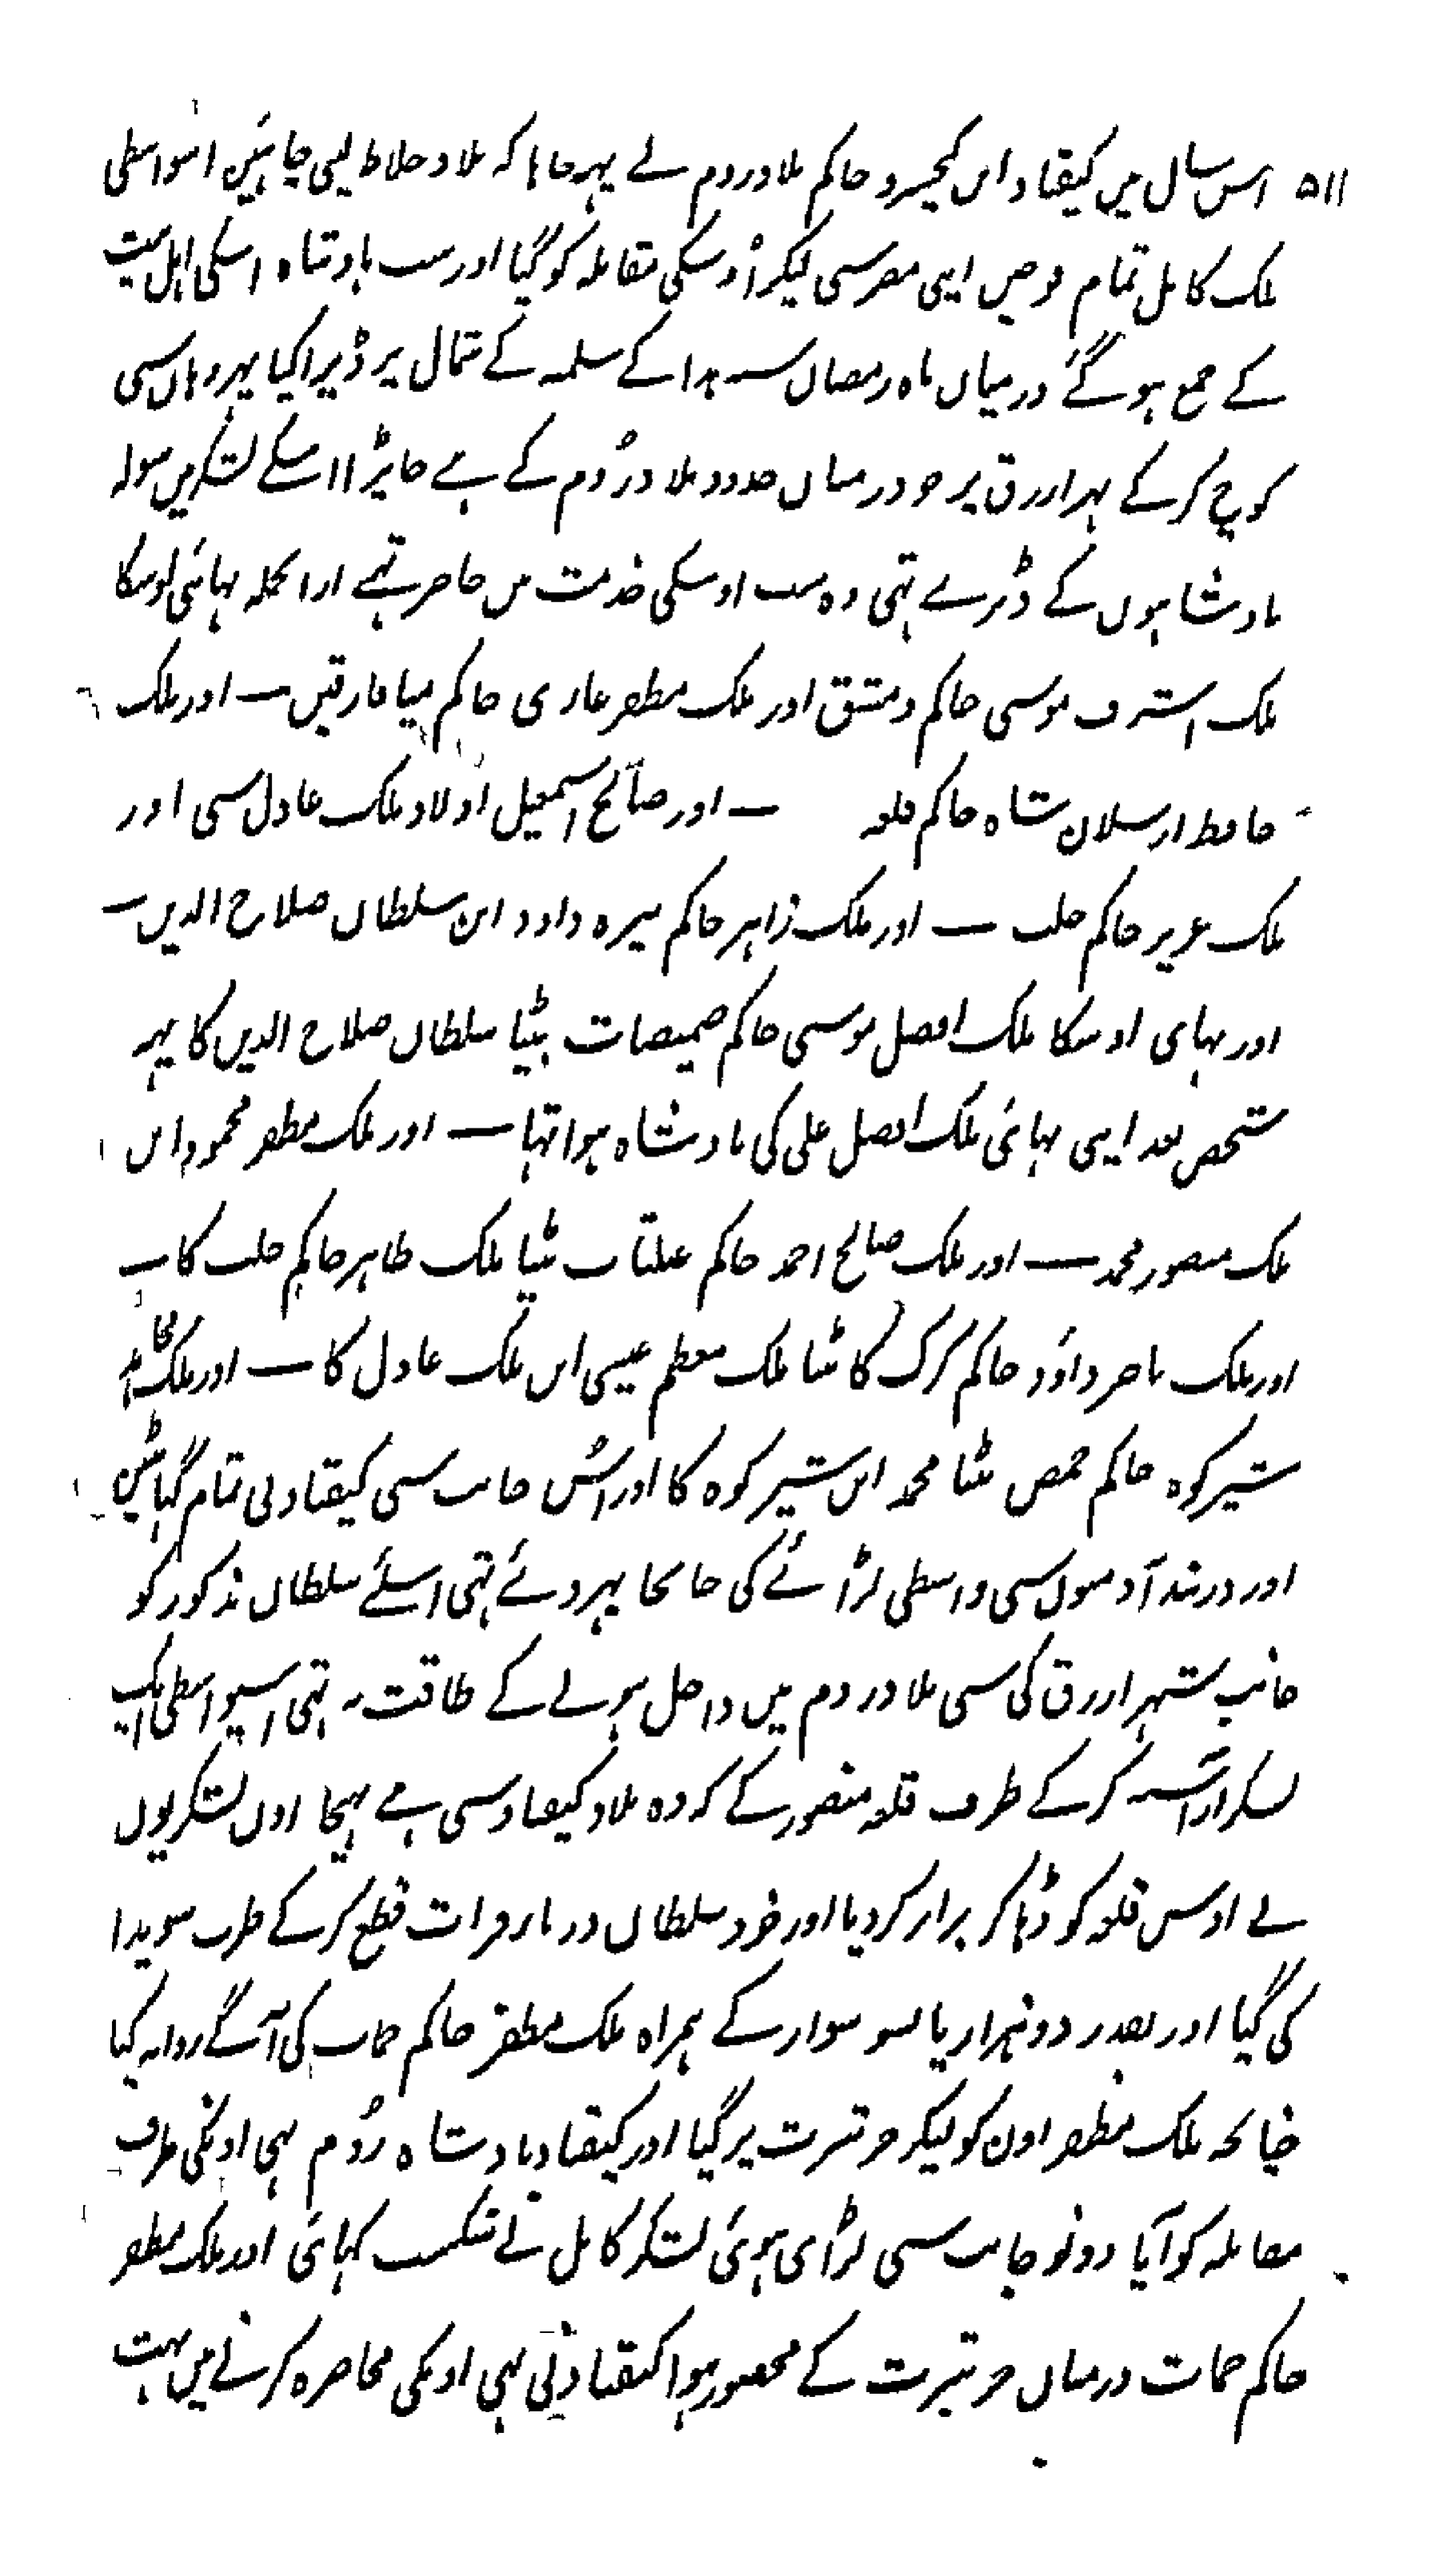 ۵۱۱ اس سال میں کیقباد ابن کیخسرو حاکم بلاد روم نے یہہ چاہا کہ بلاد خلاط لیی چاہئین اسواسطی
ملک کامل تمام فوجیں اپنی مصر سی لیکر اُوسکی مقابلہ کو گیا اور سب بادشاہ اسکی اہل بیت
کے جمع ہو گئے درمیان ماہ رمضان سنہ ہذا کے سلمیہ کے شمال پر ڈیرا کیا پہر وہاں سی
کوچ کر کے نہر ازرق پر جو درمیان حدود بلاد رُوم کے ہے جا پڑا اسکے لشکر میں سولہ
بادشاہوں کے ڈیرے تہی وہ سب اوسکی خدمت میں حاضر تہے ازانجملہ بہائی اوسکا
ملک اشرف موسی حاکم دمشق اور ملک مظفر غازی حاکم میافارقین — اور ملک
حافظ ارسلان شاہ حاکم قلعہ — اور صالح اسمعیل اولاد ملک عادل سی اور
ملک عزیز حاکم حلب — اور ملک زاہر حاکم بیرہ داود ابن سلطان صلاح الدین —
اور بہای اوسکا ملک افضل موسی حاکم صمیصات بیٹا سلطان صلاح الدین کا یہہ
شخص بعد اپنی بہائی ملک افضل علی کی بادشاہ ہوا تہا — اور ملک مظفر محمود ابن
ملک منصور محمد — اور ملک صالح احمد حاکم عینتاب بیٹا ملک ظاہر حاکم حلب کا —
اور ملک ناصر داوٗد حاکم کرک کا بیٹا ملک معظم عیسی ابن ملک عادل کا — اور ملک مجاہد
شیرکوہ حاکم حمص بیٹا محمد ابن شیرکوہ کا اور اسُ جانب سی کیقباد نی تمام گہاٹین
اور درہند آدمیوں سی واسطی لڑائے کی جا بجا بہر دئے تہی اسلئے سلطان مذکور کو
جانب شہر ازرق کی سی بلاد روم میں داخل ہونے کے طاقت نہ تہی اسیواسطی ایک
لشکر آراستہ کر کے طرف قلعہ منصور کے کہ وہ بلاد کیقباد سی ہے بہیجا اون لشکریوں
نے اوس قلعہ کو ڈہا کر برابر کر دیا اور خود سلطان دریار فرات قطع کر کے طرف سویدا
کی گیا اور بقدر دو ہزار پانسو سوار کے ہمراہ ملک مظفر حاکم حمات کی آگے روانہ کیا
چنانچہ ملک مظفر اون کو لیکر خرتبرت پر گیا اور کیقباد بادشاہ رُوم بہی اونکی طرف
مقابلہ کو آیا دونو جانب سی لڑائی ہوئی لشکر کامل نے شکست کہائی اور ملک مظفر
حاکم حمات درمیان خرتبرت کے محصور ہوا کیقباد نی بہی اونکی محاصرہ کرنے میں بہت